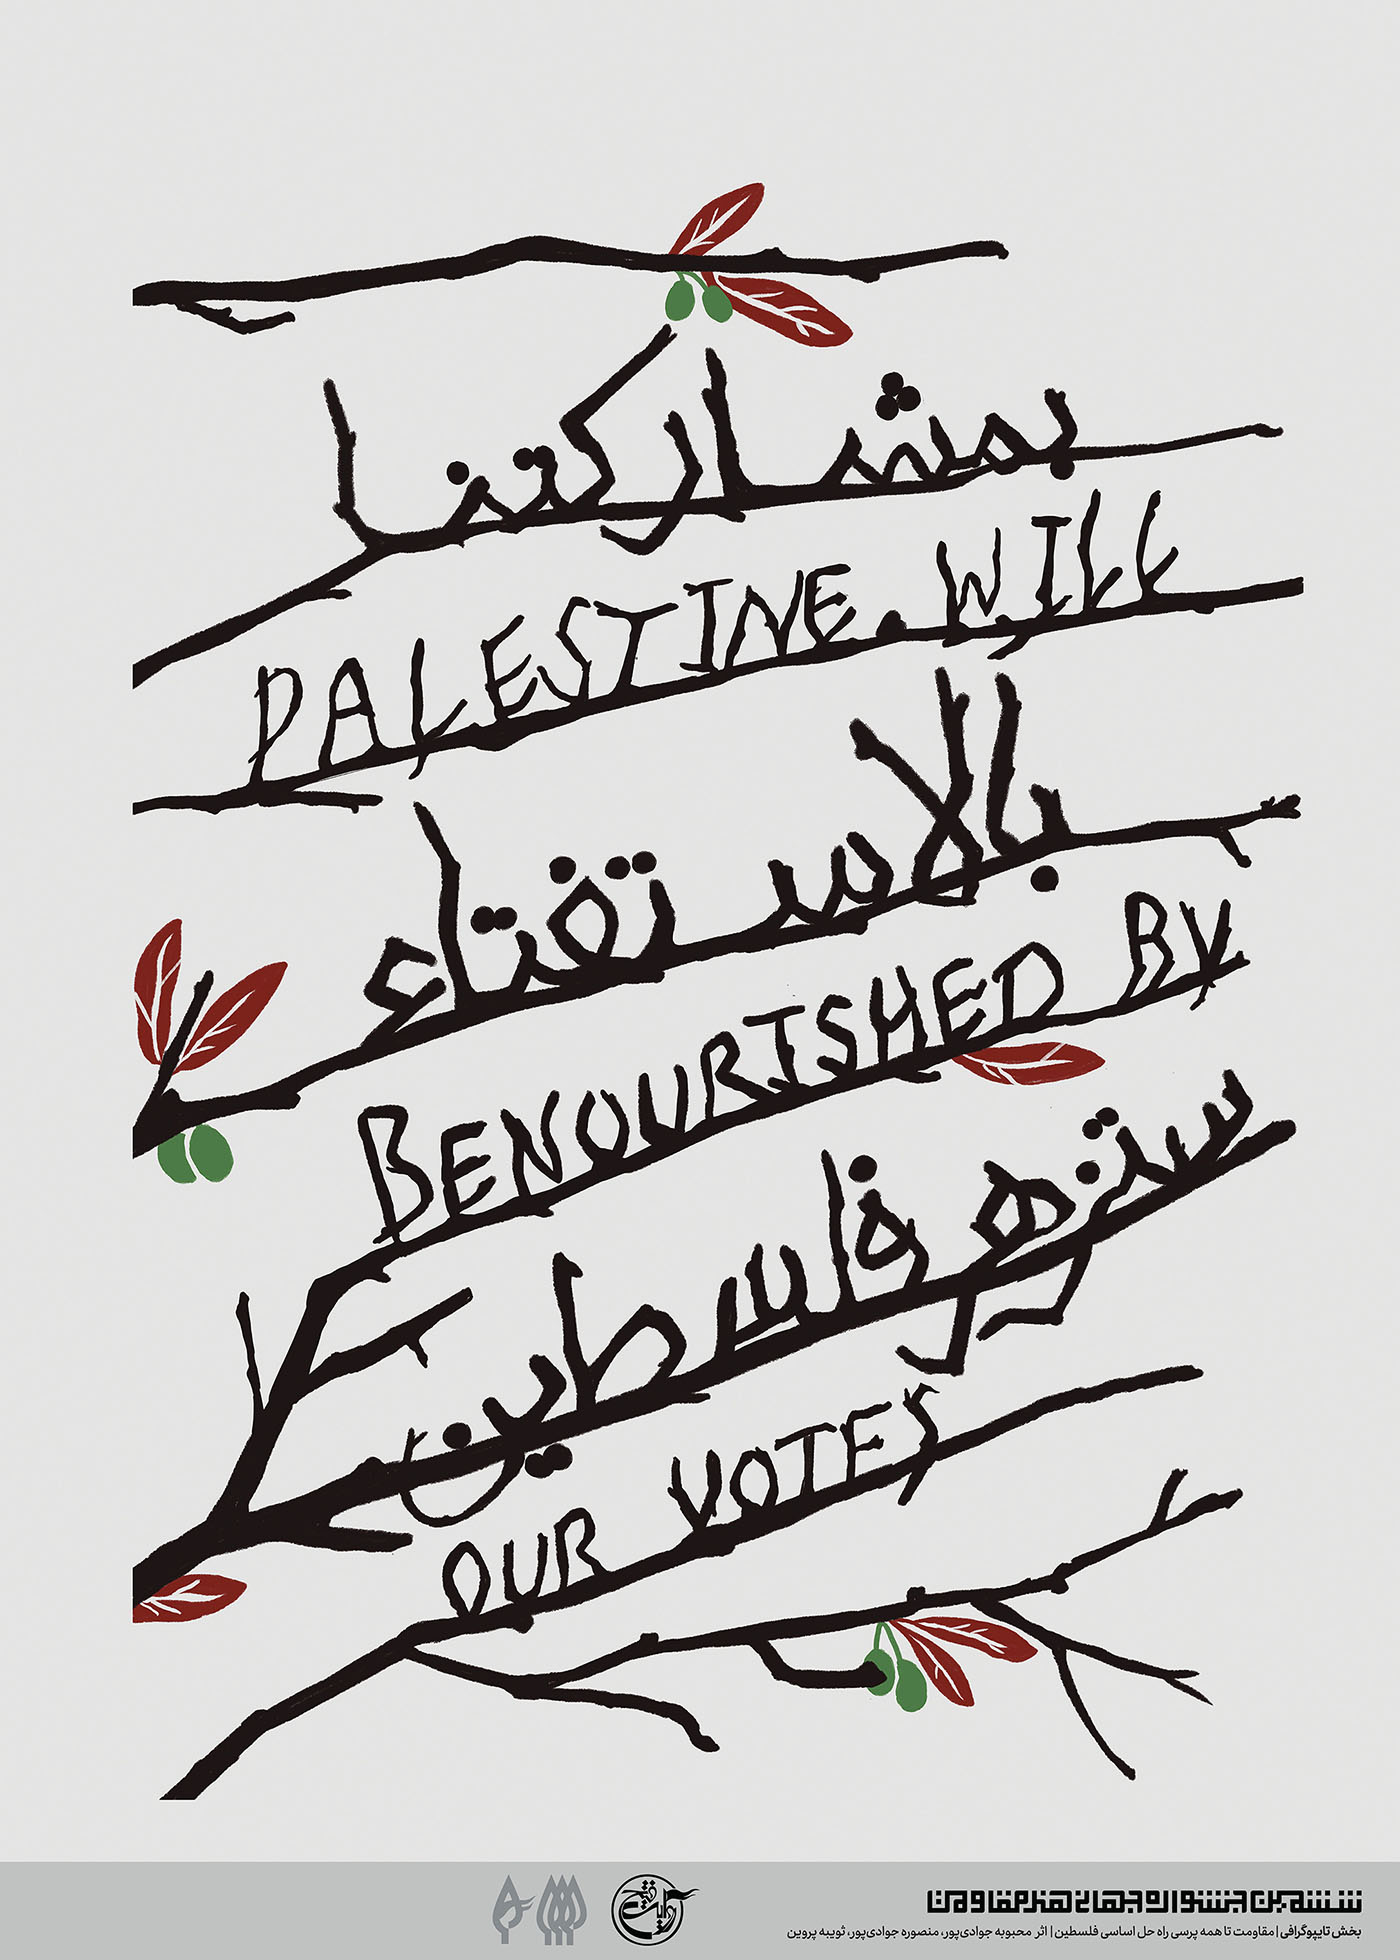 بمشاركتنا
PALESTINE. WILL
بالاستفتاء
BENOURISHED BY
ستزهر فلسطين
OUR VOTES
ششمین جشنواره جهانی هنر مقاومت
بخش تایپوگرافی | مقاومت تا همه پرسی راه حل اساسی فلسطین | اثر محبوبه جوادی‌پور، منصوره جوادی‌پور، ثویبه پروین